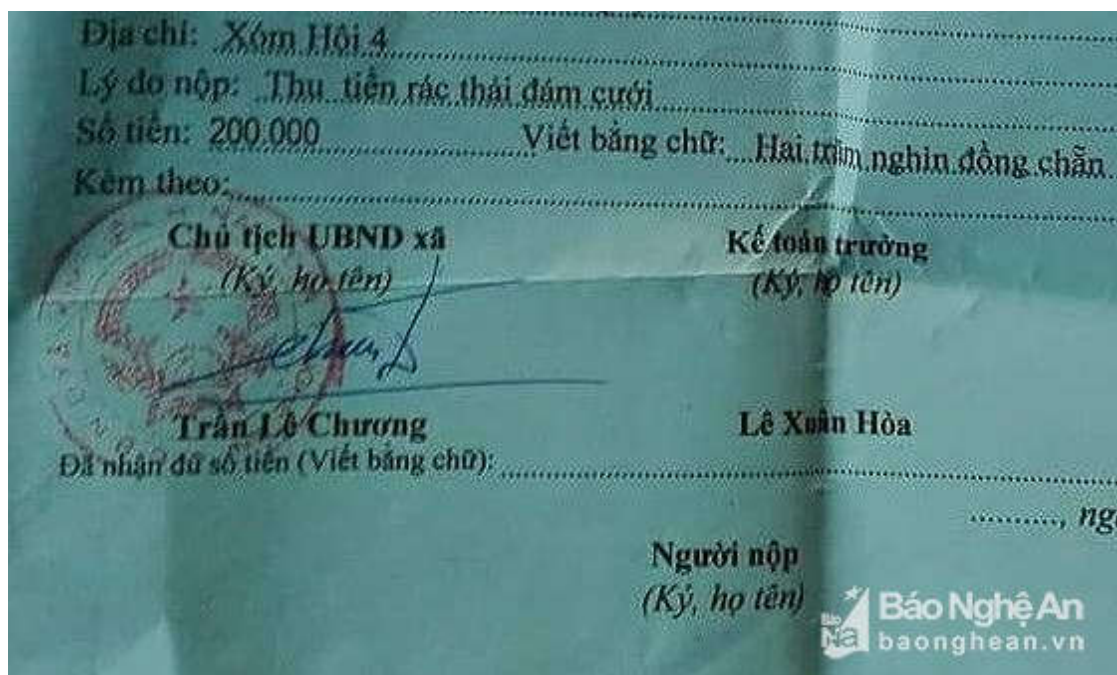 Địa chỉ: Xóm Hội 4
Lý do nộp: Thu tiền rác thải đám cưới
Số tiền: 200.000 Viết bằng chữ: Hai trăm nghìn đồng chẵn
Kèm theo:
Chủ tịch UBND xã Kế toán trưởng
(Ký, họ tên) (Ký, họ tên)
Trần Lê Chương Lê Xuân Hòa
Đã nhận đủ số tiền (Viết bằng chữ):
........., ng
Người nộp
(Ký, họ tên)
Báo Na Báo Nghệ An
baonghean.vn